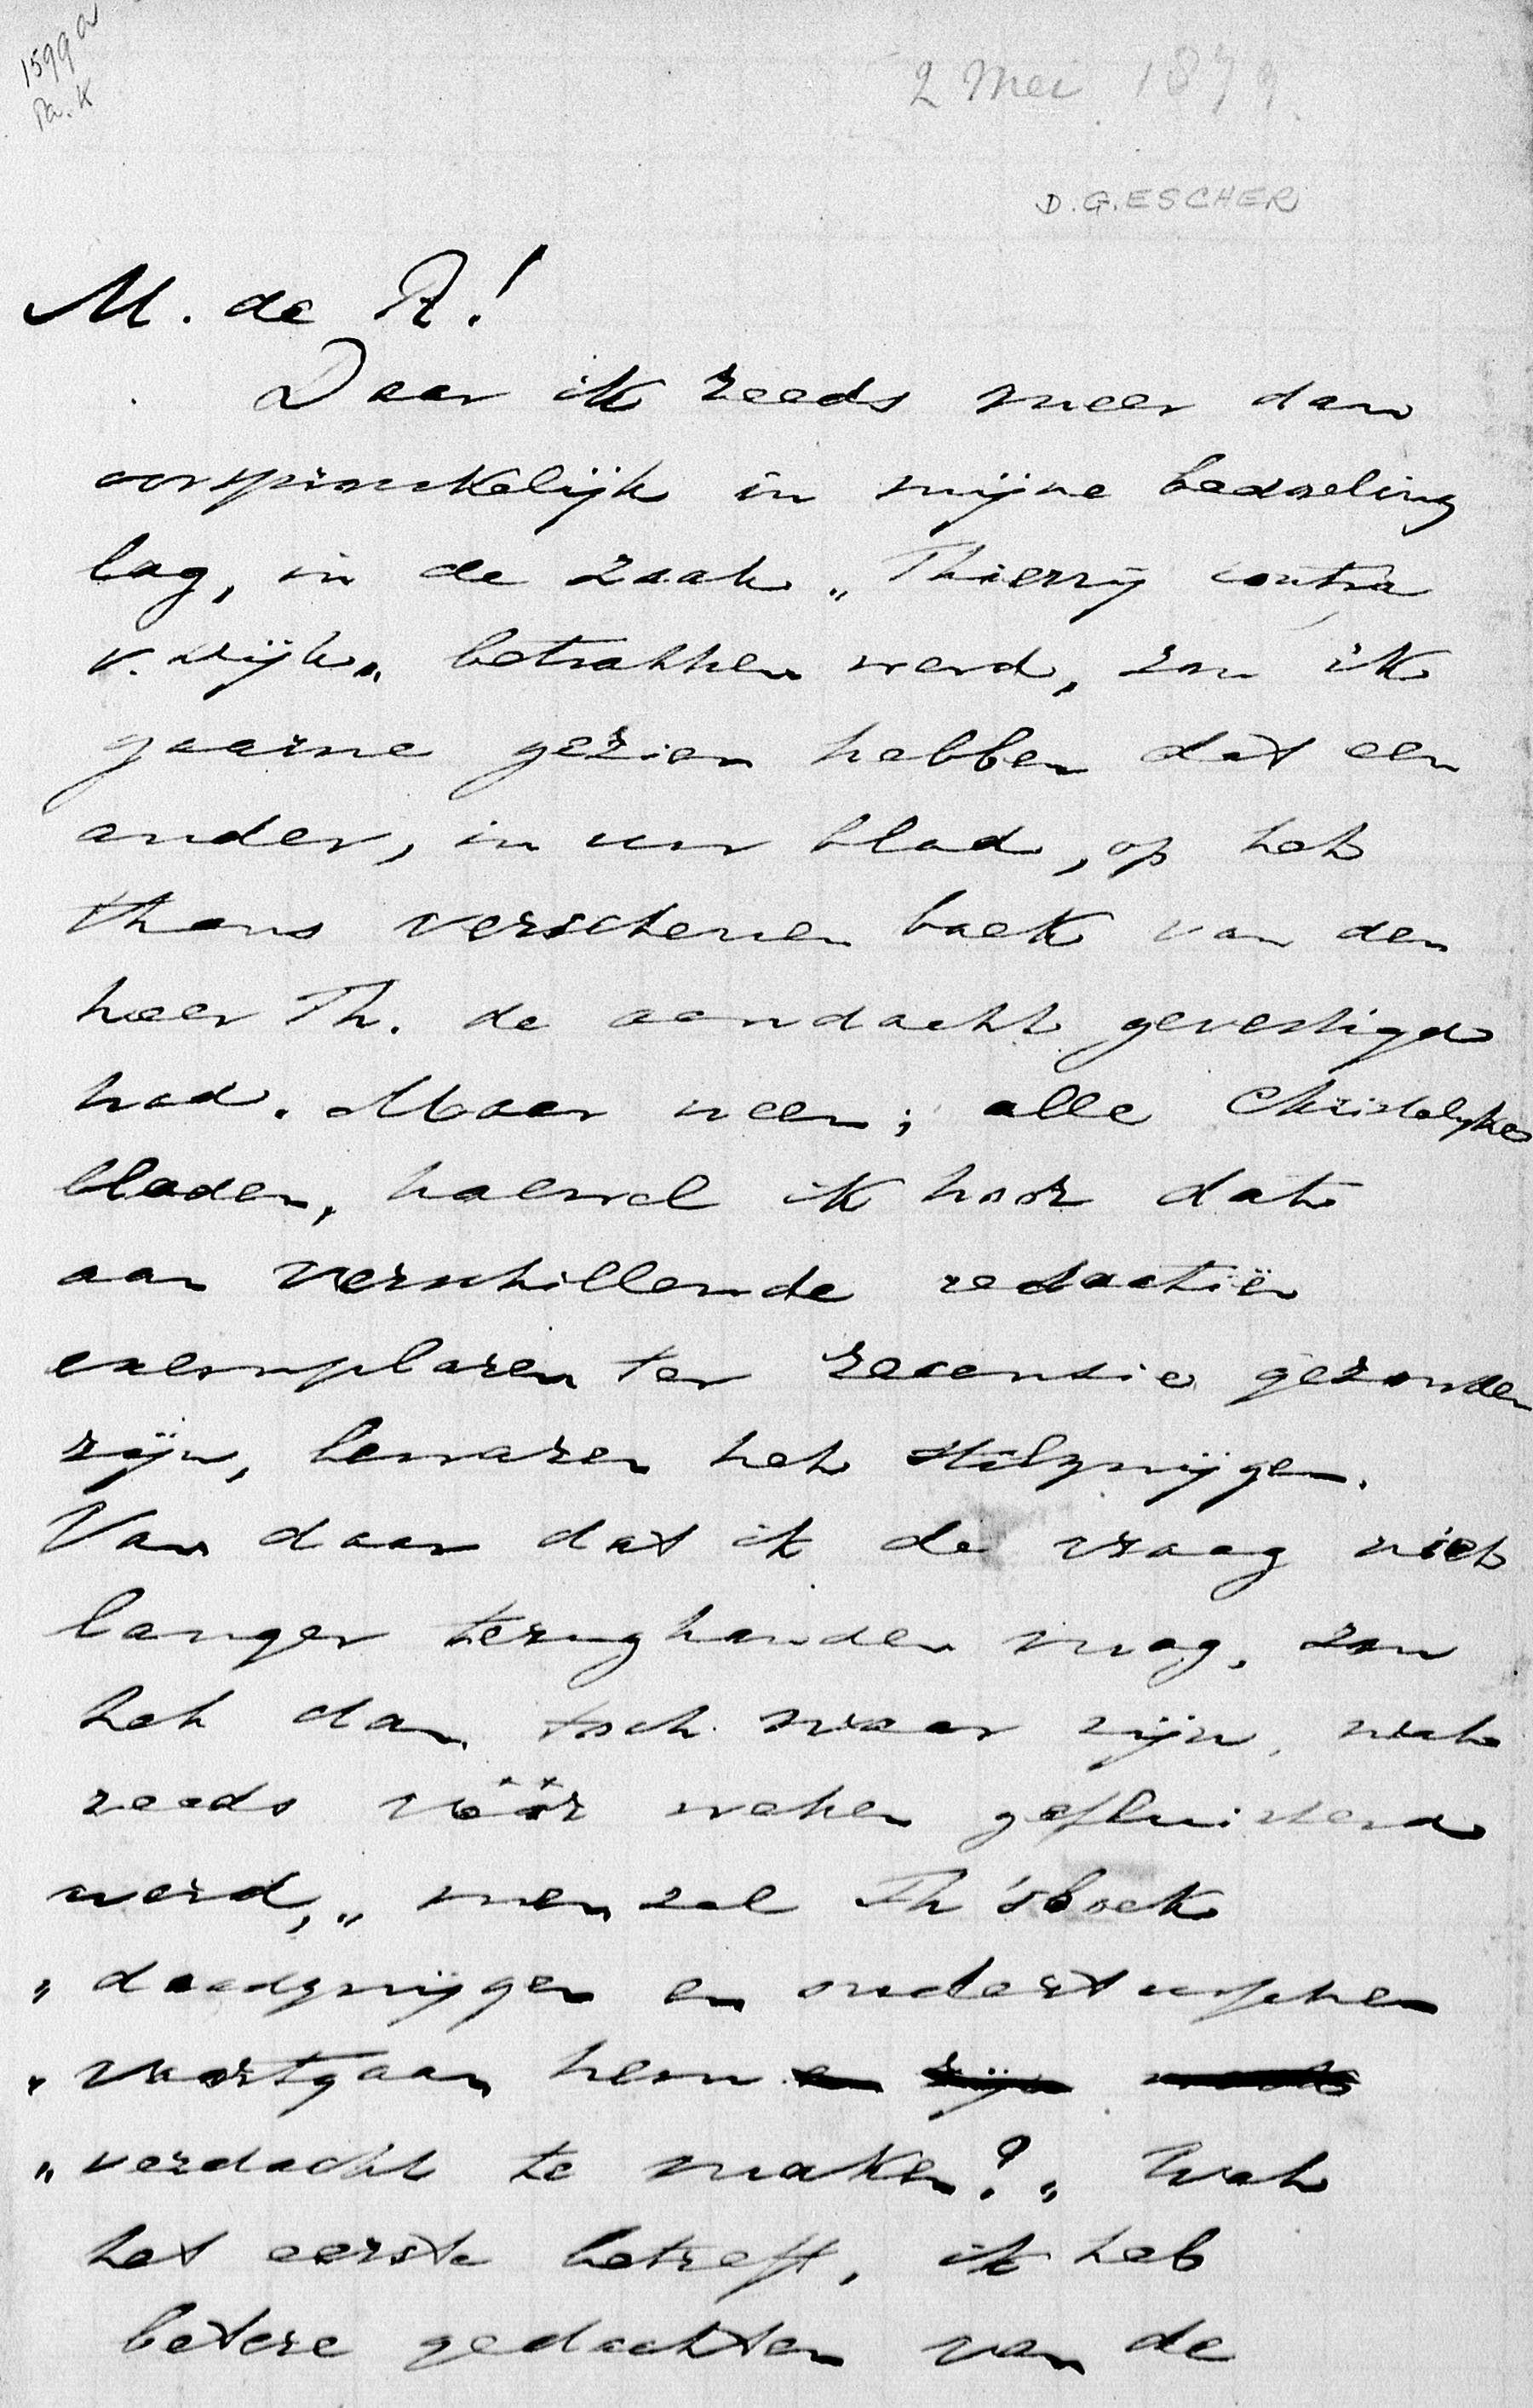 1599a
Pa. K
2 Mei 1879
D. G. ESCHER
M. de R!
Daar ik reeds meer dan
oorspronkelijk in mijne bedoeling
lag, in de zaak „Thierrÿ contra
v. Wijk„ betrokken werd, zou ik
gaarne gezien hebben dat een
ander, in uw blad, op het
thans verschenen boek van den
heer Th. de aandacht gevestigd
had. Maar neen; alle Christelijke
bladen, hoewel ik hoor dat
aan verschillende redactiën
exemplaren ter recensie gezonden
zijn, bewaren het stilzwijgen.
Van daar dat ik de vraag niet
langer terughouden mag, zou
het dan toch waar zijn, wat
reeds vóór weken gefluisterd
werd, „men zal Th's boek
„doodzwijgen en ondertusschen
„voortgaan hem en zijn
„verdacht te maken?„ Wat
het eerste betreft, ik heb
betere gedachten van de